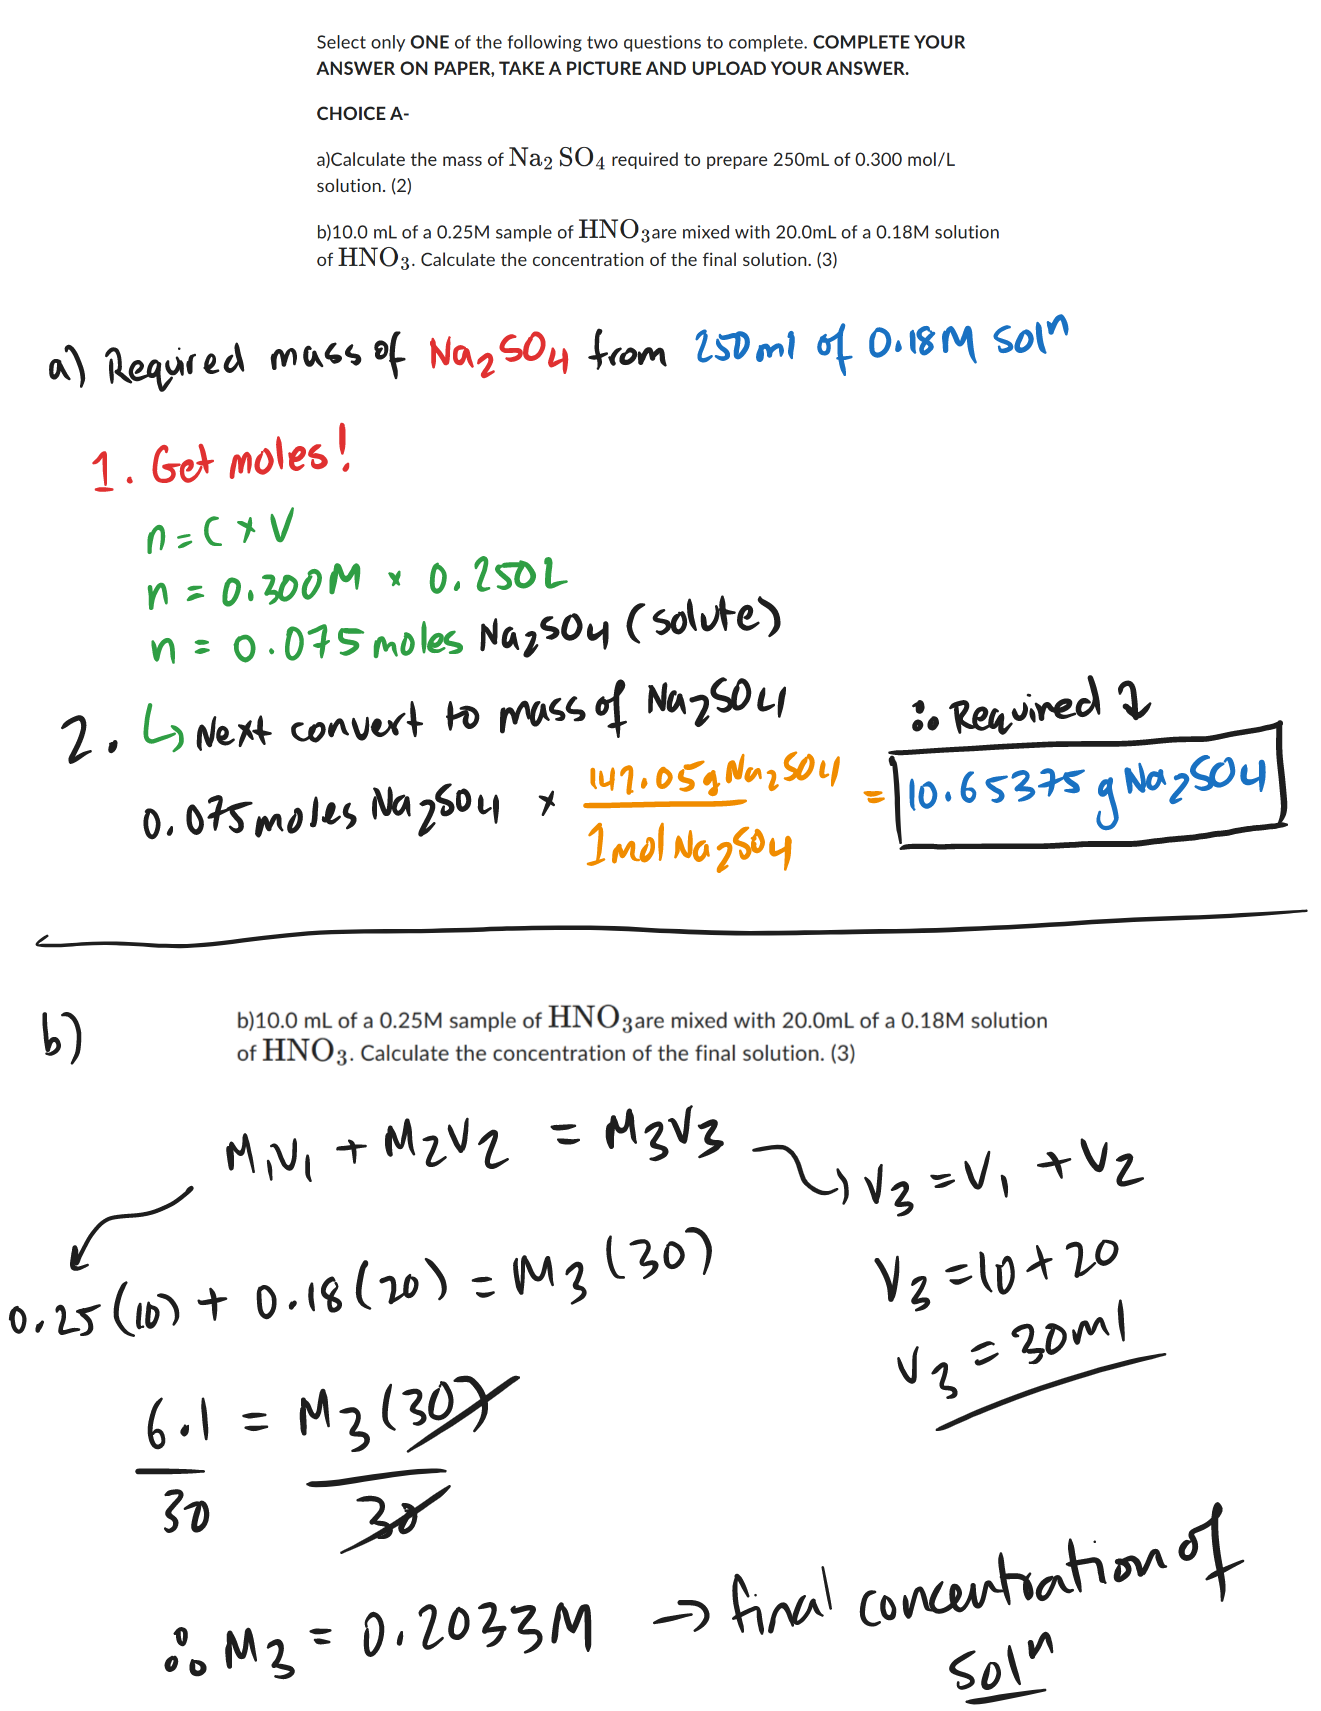 Select only ONE of the following two questions to complete. COMPLETE YOUR
ANSWER ON PAPER, TAKE A PICTURE AND UPLOAD YOUR ANSWER.
CHOICE A-
a)Calculate the mass of Na₂ SO₄ required to prepare 250mL of 0.300 mol/L
solution. (2)
b)10.0 mL of a 0.25M sample of HNO₃are mixed with 20.0mL of a 0.18M solution
of HNO₃. Calculate the concentration of the final solution. (3)
a) Required mass of Na₂SO₄ from 250ml of 0.18M solⁿ
1. Get moles!
n = C × V
n = 0.300M × 0.250L
n = 0.075 moles Na₂SO₄ (solute)
2. ↳ Next convert to mass of Na₂SO₄
∴ Required ↓
0.075 moles Na₂SO₄ × 142.05g Na₂SO₄ / 1 mol Na₂SO₄ = 10.65375 g Na₂SO₄
b)
b)10.0 mL of a 0.25M sample of HNO₃are mixed with 20.0mL of a 0.18M solution
of HNO₃. Calculate the concentration of the final solution. (3)
M₁V₁ + M₂V₂ = M₃V₃
V₃ = V₁ + V₂
0.25(10) + 0.18(20) = M₃(30)
V₃ = 10 + 20
V₃ = 30ml
6.1 = M₃(30)
30 30
∴ M₃ = 0.2033M → final concentration of
solⁿ